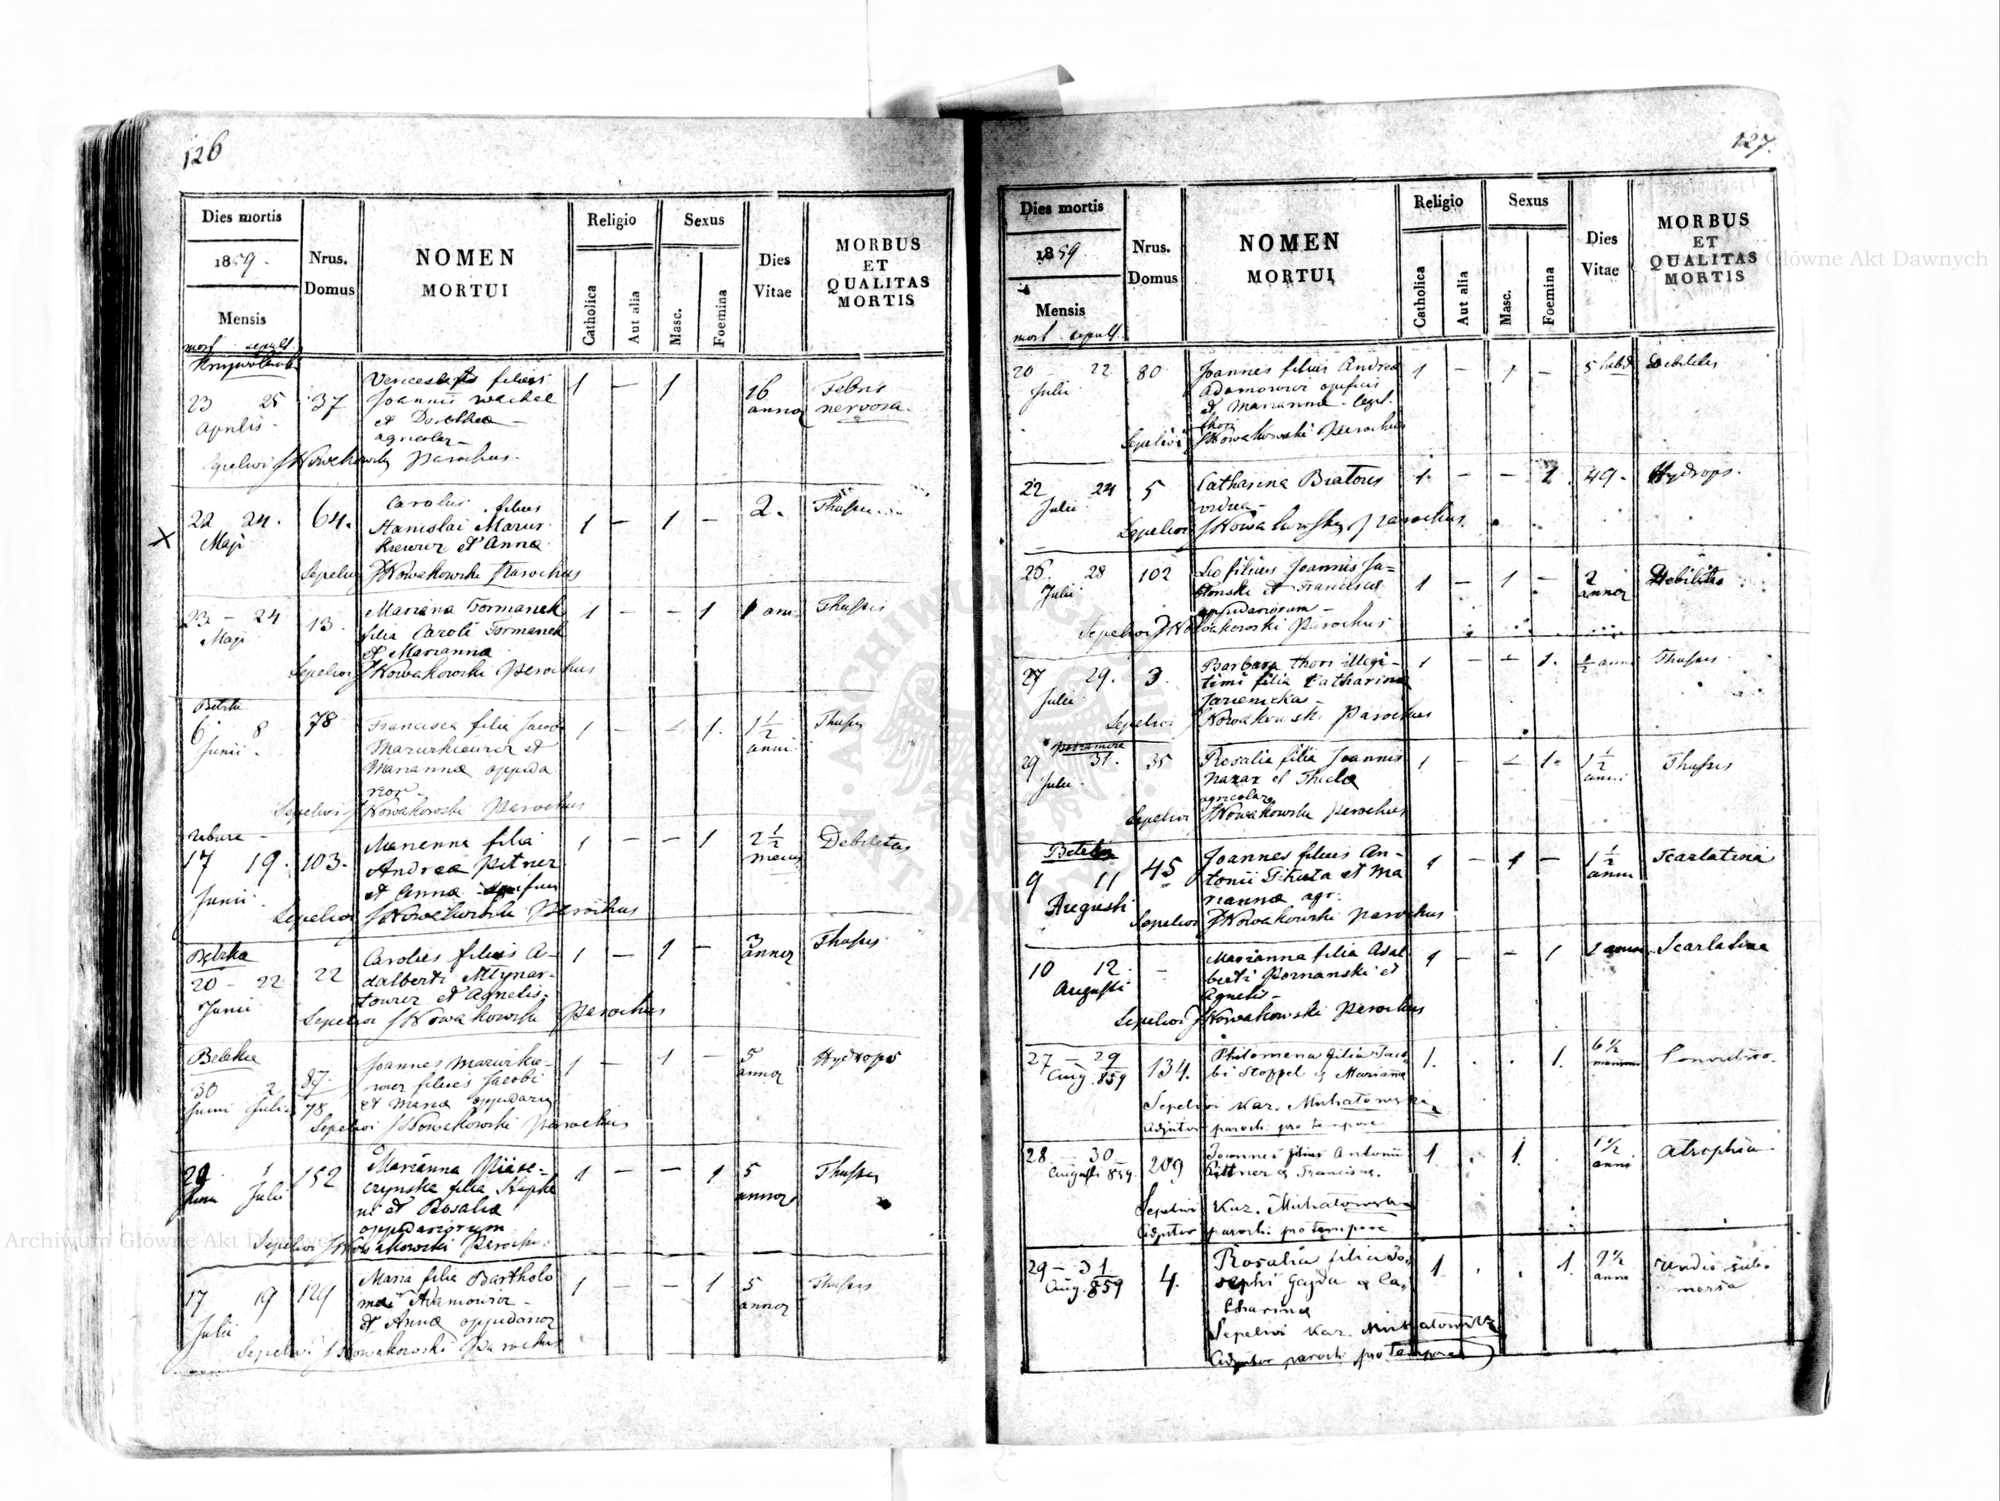 126
Dies mortis
1859.
Mensis
mort. sepult.
Nrus.
Domus
NOMEN
MORTUI
Religio
Catholica
Aut alia
Sexus
Masc.
Foemina
Dies
Vitae
MORBUS
ET
QUALITAS
MORTIS
23 25
Aprilis
37
filius
Joannis Wachel
et Dorothea
agricolar
1 — 1
16
annor
Febris
nervosa.
Sepelivi J Nowakowski Parochus.
X
22 24.
Maji
64.
Carolus filius
Stanislai Mazur
kiewicz et Anna
1 — 1 —
2.
Sepelivi J Nowakowski Parochus
23 — 24
Maji
13.
Mariana Formanek
filia Caroli Formanek
et Marianna
1 — — 1
1 ann
Thussis
Sepelivi J Nowakowski Parochus
6 8
Junii
78
Francisca filia Jacobi
Mazurkiewicz et
Marianna oppida
nor
1 — — 1.
1 1/2
anni
Thussis
Sepelivi J Nowakowski Parochus
17 19.
Junii
103.
Marianna filia
Andrea Pitner
et Anna
1 — — 1
2 1/2
Debilitas
Sepelivi J Nowakowski Parochus
Belzka
20 — 22
Junii
22
Carolus filius A-
dalberti Mlynar-
towicz et Agnetis
1 — 1 —
3
annor
Thussis
Sepelivi J Nowakowski Parochus
30 2
Junii Julii
87.
78
Joannes Mazurkie-
wicz filius Jacobi
et Maria oppidanor
1 — 1 —
5
annor
Hydrops
Sepelivi J Nowakowski Parochus
29 1
Junii Julii
152
Marianna Piase-
czynska filia Stepha
ni et Rosalia
oppidanorum
1 — — 1
5
annor
Thussis
Sepelivi J Nowakowski Paroch.
17 19
Julii
129
Maria filia Bartholo
mei Adamowicz
et Anna oppidanor
1 — — 1
5
annor
Thussis
Sepelivi J Nowakowski Parochus
127.
Dies mortis
1859
Mensis
mort sepult.
Nrus.
Domus
NOMEN
MORTUI
Religio
Catholica
Aut alia
Sexus
Masc.
Foemina
Dies
Vitae
MORBUS
ET
QUALITAS
MORTIS
20 22
Julii
80
Joannes filius Andrea
Adamowicz opificis
et Marianna legit.
thori
1 — 1 —
5
Debilitas
Sepelivi J Nowakowski Parochus
22 24
Julii
5
Catharina Bratous
vidua
1. — — 1
49.
Hydrops.
Sepelivi J Nowakowski Parochus
26. 28
Julii
102
Leo filius Joannis Ja-
blonski et Francisca
oppidanorum
1 — 1 —
2
annor
Debilitas
Sepelivi J Nowakowski Parochus
27 29.
Julii
3.
Barbara thori illegi-
timi filia Catharina
1 — — 1.
1/2 anni
Thussis
Sepelivi J Nowakowski Parochus
29 31.
Julii
35
Rosalia filia Joannis
Nazar et Thecla
agricolar
1 — — 1.
1 1/2
anni
Thussis
Sepelivi J Nowakowski Parochus
9 11
Augusti
45
Joannes filius An-
tonii et Ma
rianna agr.
1 — 1 —
1 1/2
anni
Scarlatina
Sepelivi J Nowakowski Parochus
10 12.
Augusti
—
Marianna filia Adal
berti Poznanski et
Agnetis
1 — — 1
Scarlatina
Sepelivi J Nowakowski Parochus
27 — 29
Aug. 859
134.
Philomena filia Jaco-
bi Stoppel & Marianna
1. . . 1.
6 1/2
Sepelivi Kaz. Michałowski
Adjutor parochi pro tempore
28. — 30
Augusti 859.
209
Joannes filius Antonii
Pittner & Francisca.
1 . 1. .
1 1/2
anni
Atrophia
Sepelivi Kaz. Michałowski
Adjutor parochi pro tempore
29 — 31
Aug. 859
4.
Rosalia filia Jo-
sephi Gajda & Ca-
tharina
1 . . 1.
9 1/2
anno
undis sub-
mersa
Sepelivi Kaz.
Adjutor parochi pro tempore
Archiwum Główne Akt Dawnych
Główne Akt Dawnych
ARCHIWUM GŁÓWNE AKT DAWNYCH